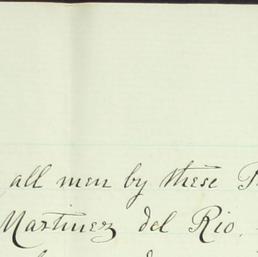 all men by these
Martinez del Rio.